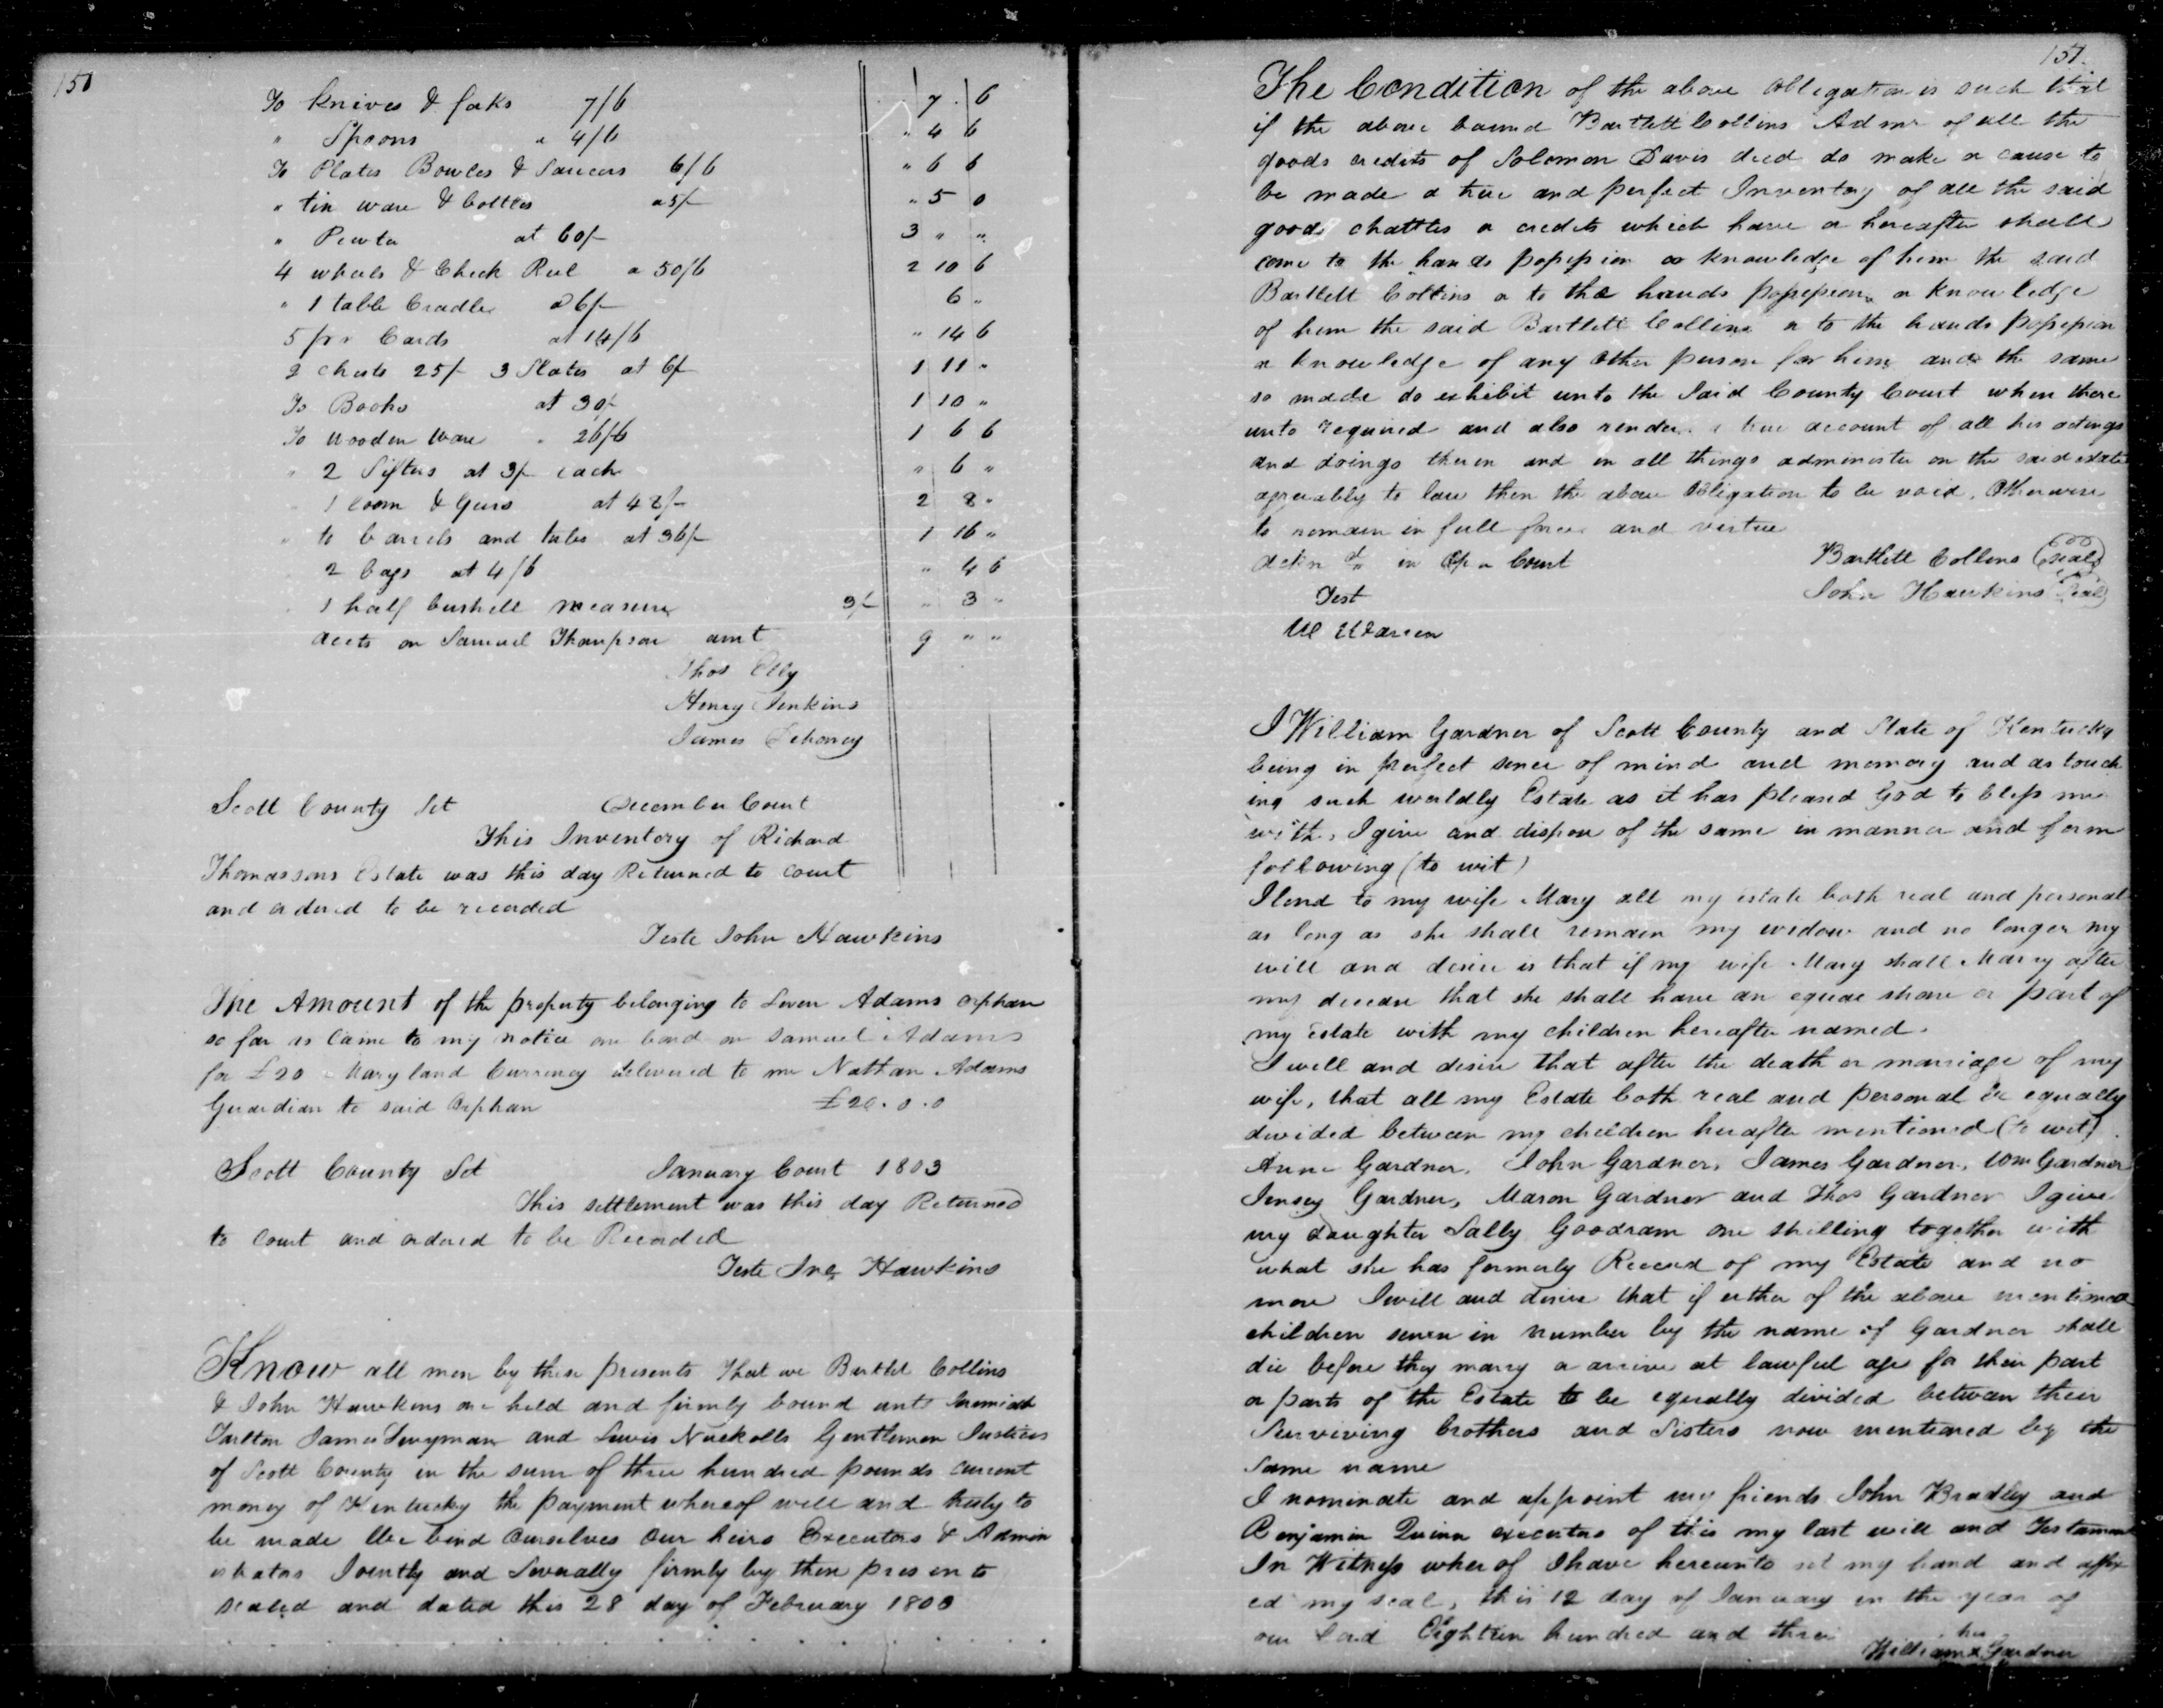 150
To knives & foks 7/6 7 6
" Spoons " 4/6 " 4 6
To Plates Bowles & Saucers 6/6 " 6 6
" tin ware & bottles a 5/- " 5 0
" Pewter at 60/- 3 " "
4 wheels & Check Reel a 50/6 2 10 6
" 1 table Cradle a 6/- 6 "
5 pr Cards at 14/6 " 14 6
2 chests 25/- 3 Slates at 6/- 1 11 "
To Books at 30/- 1 10 "
To wooden Ware " 26/6 1 6 6
" 2 Sifters at 3/- each " 6 "
" 1 loom & Gears at 48/- 2 8 "
" to barrels and tubs at 36/- 1 16 "
2 bags at 4/6 " 4 6
1 half bushell measure 3/- " 3 "
accts on Samuel Thompson amt 9 " "
Thos Elly
Henry Jenkins
James Dehoney
Scott County Sct December Court
This Inventory of Richard
Thomassons Estate was this day Returned to court
and ordered to be recorded
Teste John Hawkins
The Amount of the property belonging to Leven Adams orphan
so far as came to my notice one bond on Samuel Adams
for £20 Maryland Currency delivered to me Nathan Adams
Guardian to said Orphan £20.0.0
Scott County Sct January Court 1803
This settlement was this day Returned
to court and ordered to be Recorded
Teste Jno Hawkins
Know all men by these presents That we Bartlet Collins
& John Hawkins are held and firmly bound unto Jeremiah
Tarlton James and Lewis Nuckolls Gentlemen Justices
of Scott County in the sum of three hundred pounds current
money of Kentucky the payment whereof well and truly to
be made We bind Ourselves Our heirs Executors & Admin
istrators Jointly and Severally firmly by these presents
sealed and dated this 28 day of February 1803
151.
The Condition of the above Obligation is such that
if the above bound Bartlett Collins Admr of all the
goods credits of Solomon Davis decd do make or cause to
be made a true and perfect Inventory of all the said
goods chattles or credits which have or hereafter shall
come to the hands possession or knowledge of him the said
Bartlett Collins or to the hands possession or knowledge
of him the said Bartlett Collins or to the hands possession
or knowledge of any Other person for him and the same
so made do exhibit unto the Said County Court when there
unto required and also render a true account of all his actings
and doings therein and in all things administer on the said estate
agreeably to law then the above Obligation to be void. Otherwise
to remain in full force and virtue
in Open Court Bartlett Collins (seal)
Test John Hawkins (seal)
W Warren
I William Gardner of Scott County and State of Kentucky
being in perfect sence of mind and memory and as touch
ing such worldly Estate as it has pleased God to bless me
with, I give and dispose of the same in manner and form
following (to wit)
I lend to my wife Mary all my estate both real and personal
as long as she shall remain my widow and no longer my
will and desire is that if my wife Mary shall Marry after
my decease that she shall have an equal share or part of
my Estate with my children hereafter named.
I will and desire that after the death or marriage of my
wife, that all my Estate both real and personal be equally
divided between my children herafter mentioned (to wit)
Anne Gardner, John Gardner, James Gardner, Wm Gardner
Jensey Gardner, Mason Gardner and Thos Gardner I give
my daughter Sally Goodram one shilling together with
what she has formerly Receivd of my Estate and no
more I will and desire that if either of the above mentioned
children seven in number by the name of Gardner shall
die before they marry or arrive at lawful age for their part
or parts of the Estate to be equally divided between their
Surviving brothers and Sisters now mentioned by the
same name
I nominate and appoint my friends John Bradley and
Benjamin Quinn executors of this my last will and Testament
In Witness wherof I have hereunto set my hand and affix
ed my seal, this 12 day of January in the year of
our Lord Eighteen hundred and three
his
William x Gardner